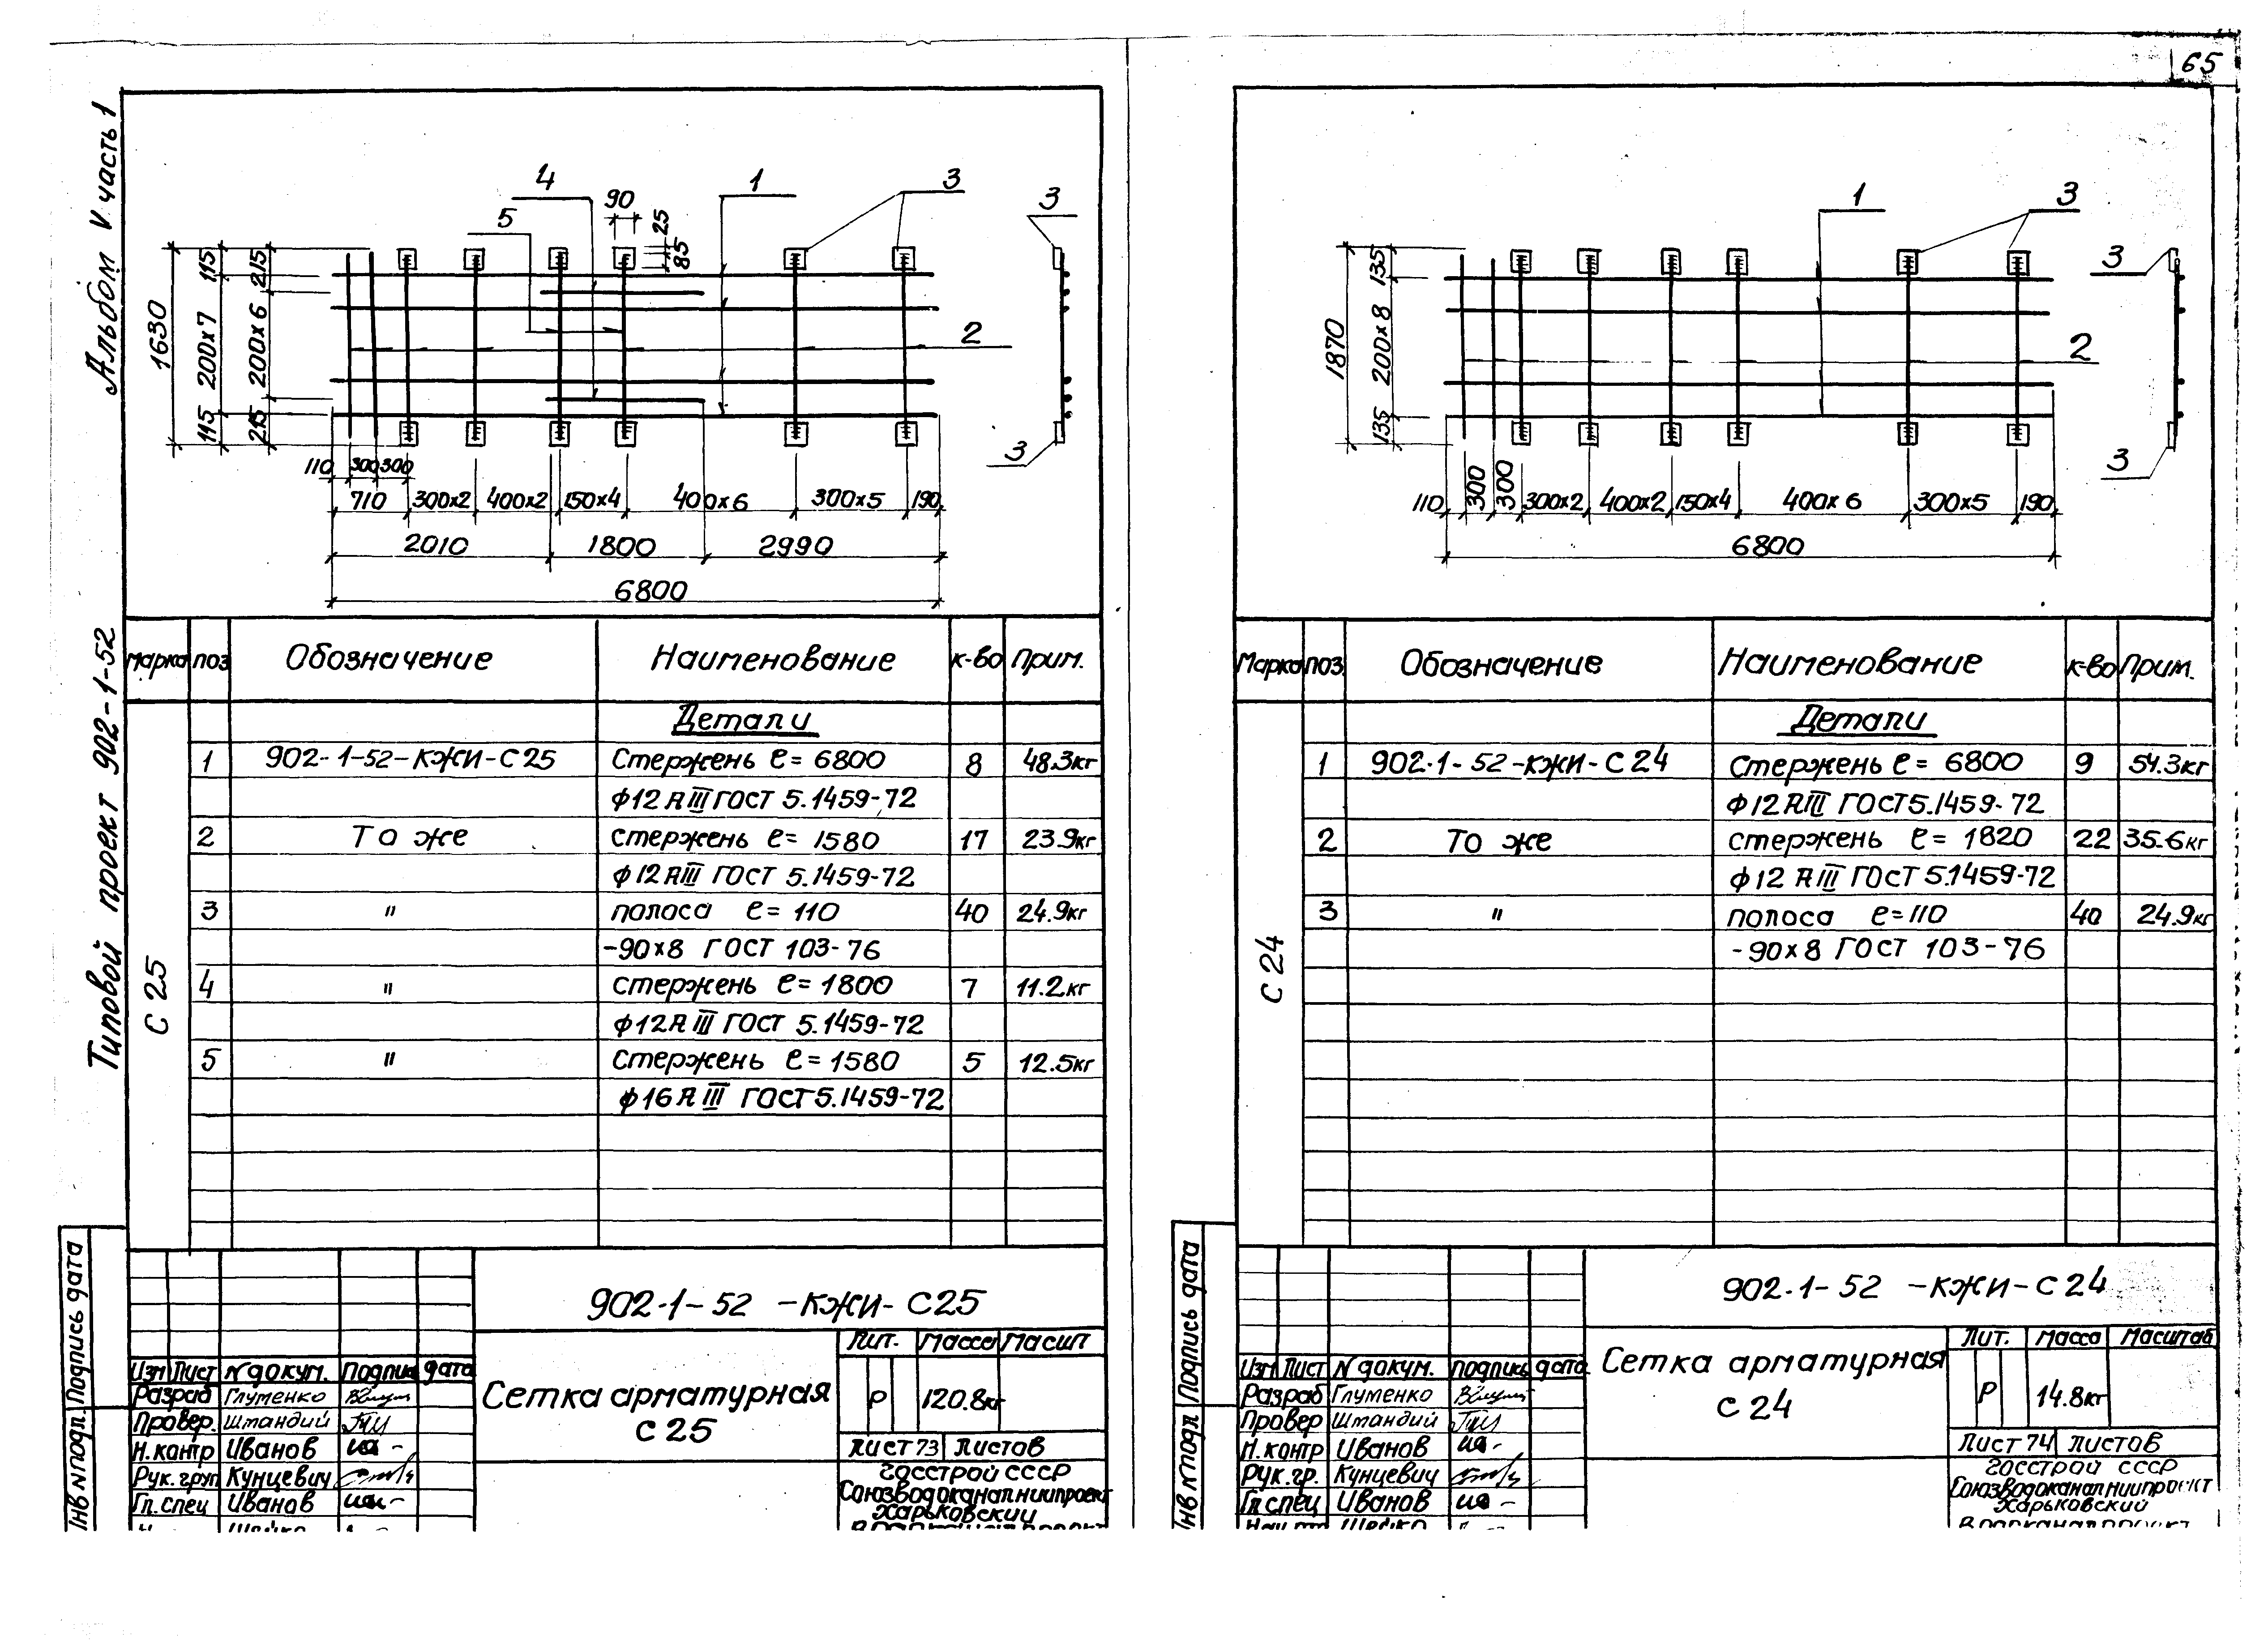 65
Альбом V часть 1
Типовой проект 902-1-52
4
1
3
3
5
90
25
85
2
3
1630
115
200х7
115
215
200х6
215
110
300
300
710
300х2
400х2
150х4
400х6
300х5
190
2010
1800
2990
6800
Марка поз Обозначение Наименование к-во Прим.
Детали
С 25
1 902-1-52-КЖИ-С25 Стержень ℓ= 6800 8 48.3кг
ф12 А III ГОСТ 5.1459-72
2 То же стержень ℓ= 1580 17 23.9кг
ф12 А III ГОСТ 5.1459-72
3 " полоса ℓ= 110 40 24.9кг
-90х8 ГОСТ 103-76
4 " стержень ℓ= 1800 7 11.2кг
ф12 А III ГОСТ 5.1459-72
5 " стержень ℓ= 1580 5 12.5кг
ф16 А III ГОСТ 5.1459-72
902-1-52 -КЖИ- С25
Лит. Масса Масшт
Изм Лист N докум. Подпись дата
Сетка арматурная
С 25
Р 120.8кг
Разраб Глуменко
Провер. Штандий
Н.контр Иванов
Лист 73 Листов
Рук.груп Кунцевич
Гл.спец Иванов
Госстрой СССР
Союзводоканалниипроект
Харьковский
Водоканалпроект
Инв N подл. Подпись дата
1
3
3
3
2
3
1870
135
200х8
135
110
300
300
300х2
400х2
150х4
400х6
300х5
190
6800
Марка поз. Обозначение Наименование к-во Прим.
Детали
С 24
1 902-1-52-КЖИ-С24 Стержень ℓ= 6800 9 54.3кг
ф12 А III ГОСТ 5.1459-72
2 То же стержень ℓ= 1820 22 35.6кг
ф12 А III ГОСТ 5.1459-72
3 " полоса ℓ=110 40 24.9кг
-90х8 ГОСТ 103-76
902-1-52 -КЖИ-С24
Лит. Масса Масштаб
Изм Лист N докум. Подпись дата
Сетка арматурная
С 24
Р 14.8кг
Разраб Глуменко
Провер Штандий
Н.контр Иванов
Лист 74 Листов
Рук.гр. Кунцевич
Гл.спец Иванов
Госстрой СССР
Союзводоканалниипроект
Харьковский
Водоканалпроект
Инв N подл Подпись дата